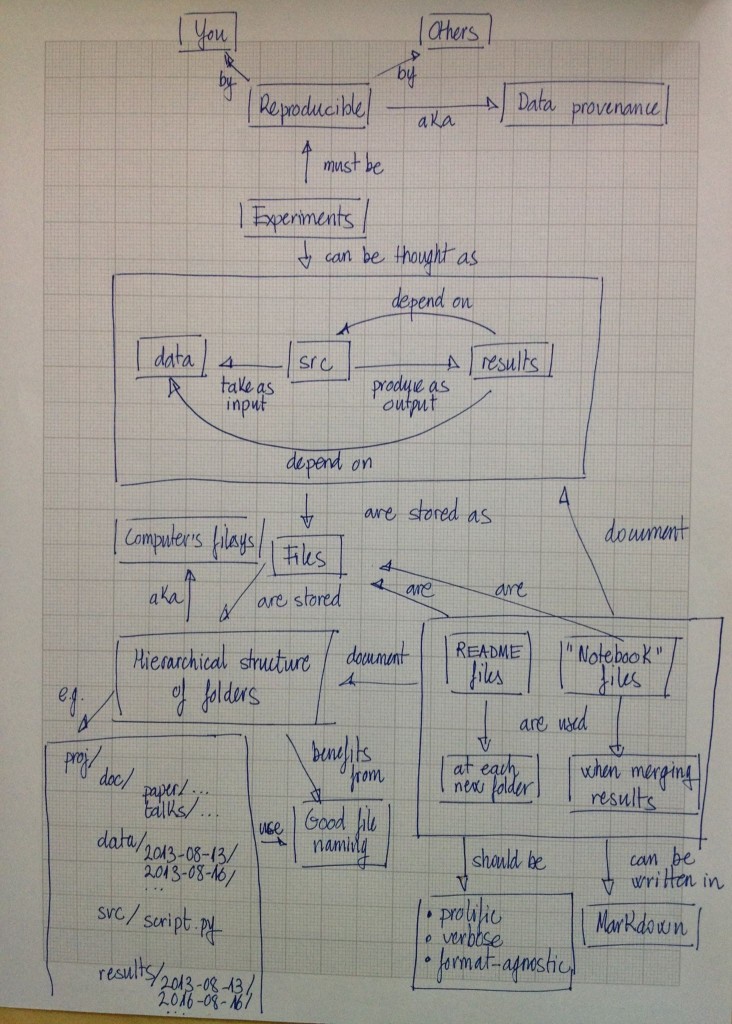 You
Others
by
by
Reproducible
aka
Data provenance
must be
Experiments
can be thought as
depend on
data
src
results
take as
input
produce as
output
depend on
are stored as
document
Computer's filesys
Files
aka
are stored
are
are
Hierarchical structure
of folders
document
README
files
"Notebook"
files
e.g.
are used
benefits
from
at each
new folder
when merging
results
proj/
doc/
paper/...
talks/...
data/
2013-08-13/
2013-08-16/
...
src/
script.py
results/
2013-08-13/
2016-08-16/
...
use
Good file
naming
should be
can be
written in
• prolific
• verbose
• format-agnostic
Markdown